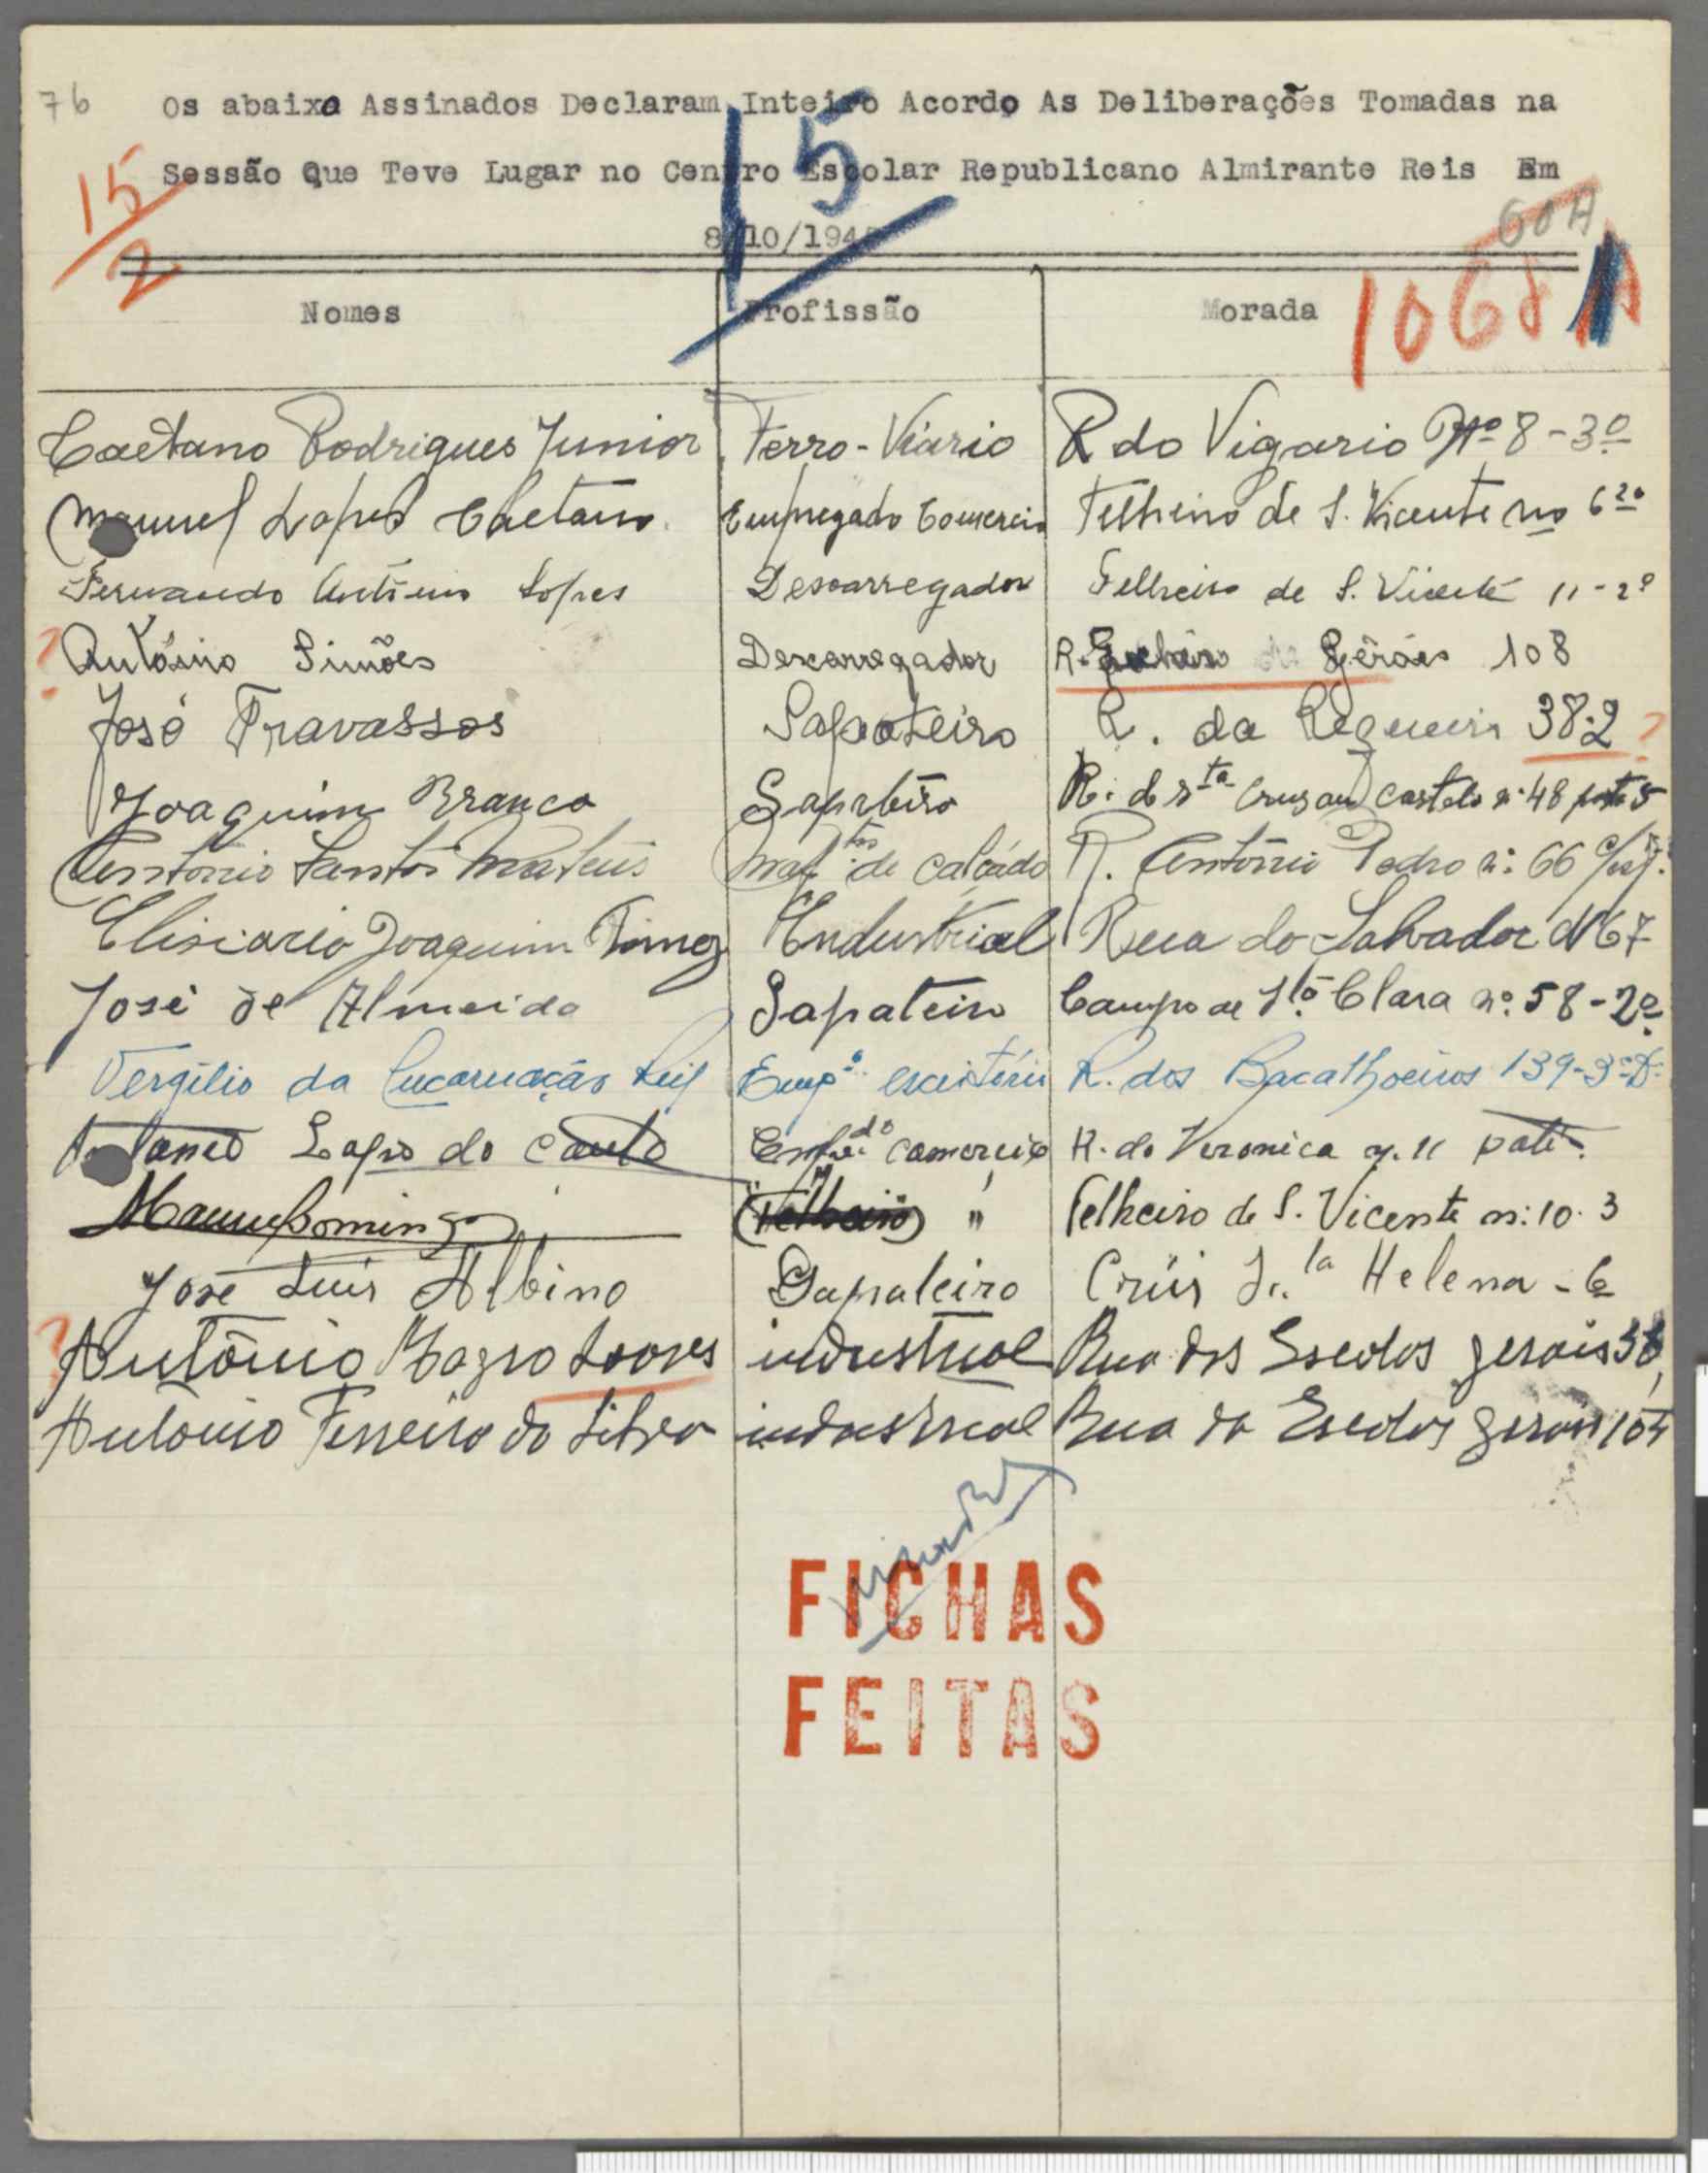 76
Os abaixo Assinados Declaram Inteiro Acordo As Deliberações Tomadas na
15
Sessão Que Teve Lugar no Centro Escolar Republicano Almirante Reis Em
15/2
60 A
8/10/1945
1068 A
Nomes Profissão Morada
Caetano Rodrigues Junior Ferro-Viário R do Vigario Nº 8-3º
Manuel Lopes Caetano Empregado Comercio Telheiro de S. Vicente no 6 2º
Fernando António Lopes Descarregador Telheiro de S. Vicente 11-2º
? António Simões Descarregador R. Geráes 108
José Travassos Sapateiro R. da Regueira 38:2 ?
Joaquim Branco Sapateiro R. de Sta Crus ao Castelo nº 48 porta 5
António Santos Mateus de calçado R. António Pedro nº 66
Elisiario Joaquim Tomez Endustrial Rua do Salvador Nº 67
José de Almeida Sapateiro Campo de Stª Clara nº 58-2º
Vergílio da Encarnação Empº escritório R. dos Bacalhoeiros 139-3º D.
Lopes do Couto Empdo comercio R. da Veronica n. 11 patio
Manuel Domingos (Telheiro) " Telheiro de S. Vicente nº 10. 3
José Luis Albino Sapateiro Crúis Sta Helena - 6
? António Magro Soares industrial Rua das Escolas gerais 38
António Ferreira da Silva industrial Rua da Escolas gerais 104
FICHAS
FEITAS